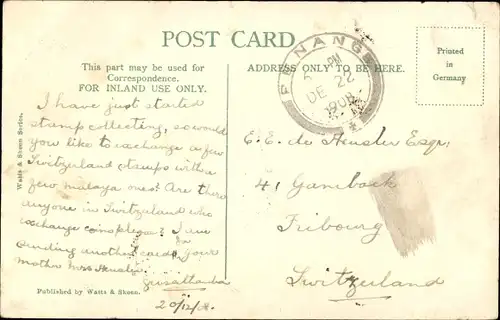 POST CARD
This part may be used for
Correspondence.
FOR INLAND USE ONLY.
ADDRESS ONLY TO BE HERE.
Printed
in
Germany
PENANG
PM
DE 22
1908
I have just started
stamp collecting, so would
you like to exchange a few
Switzerland stamps with a
few malaya ones? Are there
anyone in Switzerland who
exchange coins please? I am
sending another card to your
mother Mrs
20/12/08.
E. E. de Heusler Esqr:
41 Gambach
Fribourg
Switzerland
Watts & Skeen Series.
Published by Watts & Skeen.